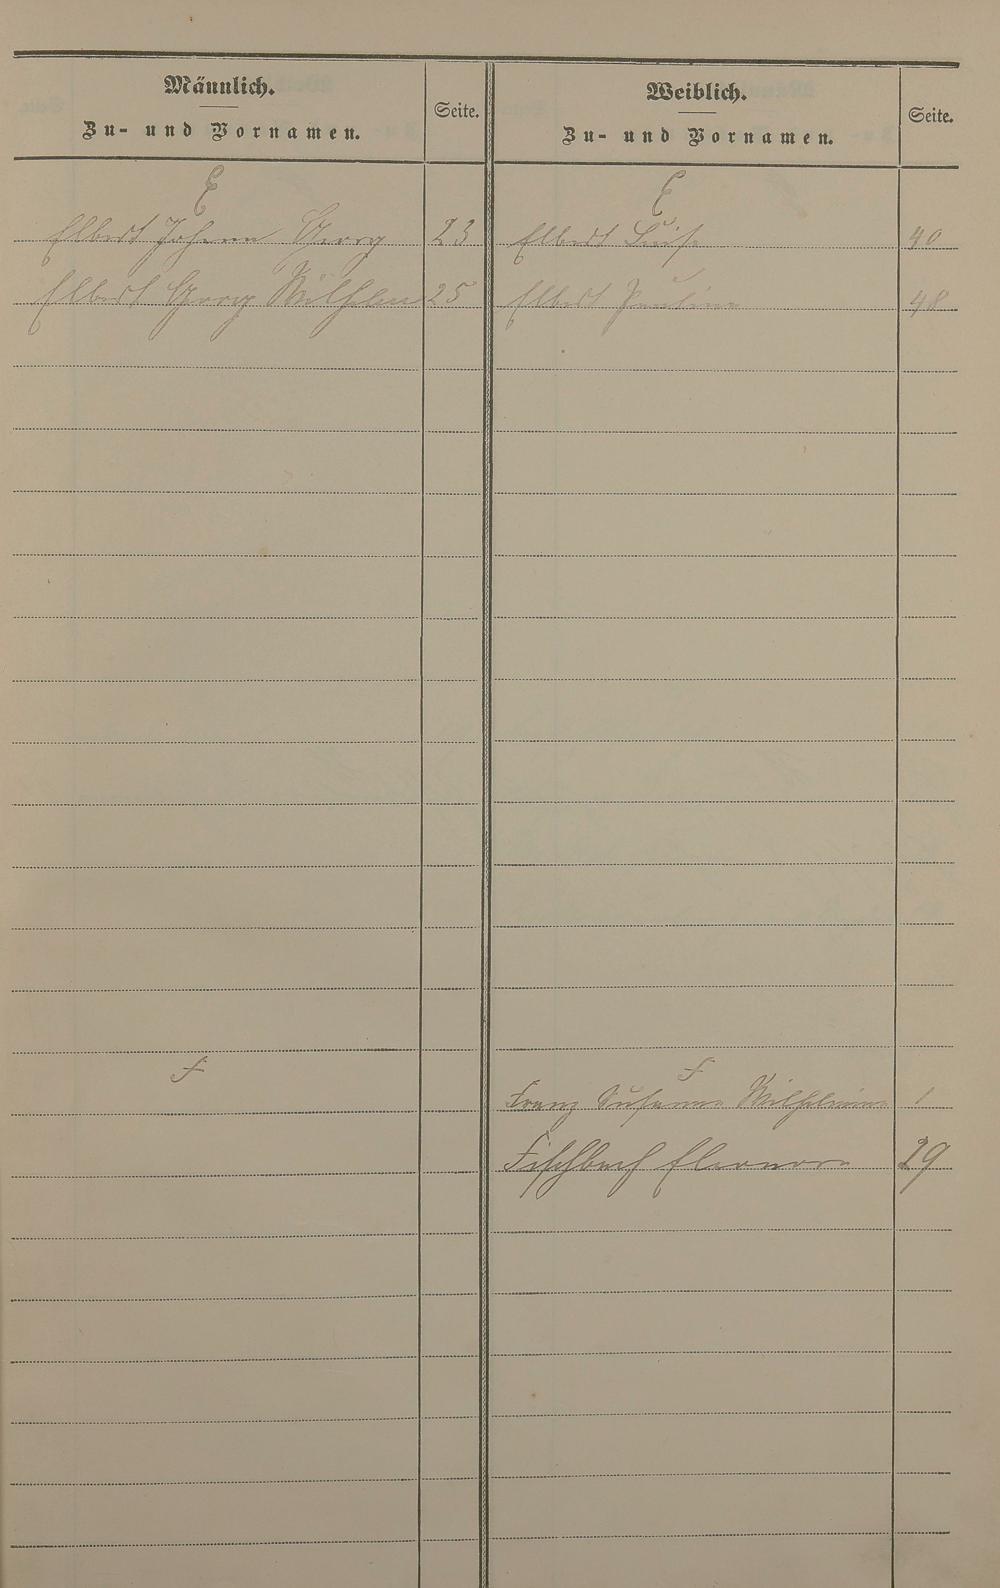 Männlich.
Zu- und Vornamen.
Seite.
E
Elbert Johann Georg 23
Elbert Georg Wilhelm 25
F
Weiblich.
Zu- und Vornamen.
Seite.
E
Elbert Luise 40
Elbert Pauline 48
F
Franz Susanna Wilhelmine 1
Fischbach Eleonore 29